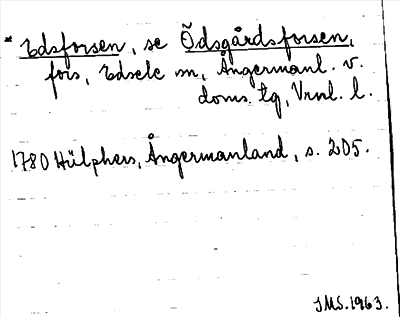 * Edsforsen, se Ödsgårdsforsen,
fors, Edsele sn, Ångermanl. v.
doms. tg, Vrnl. l.
1780 Hülphers, Ångermanland, s. 205.
JMS. 1963.